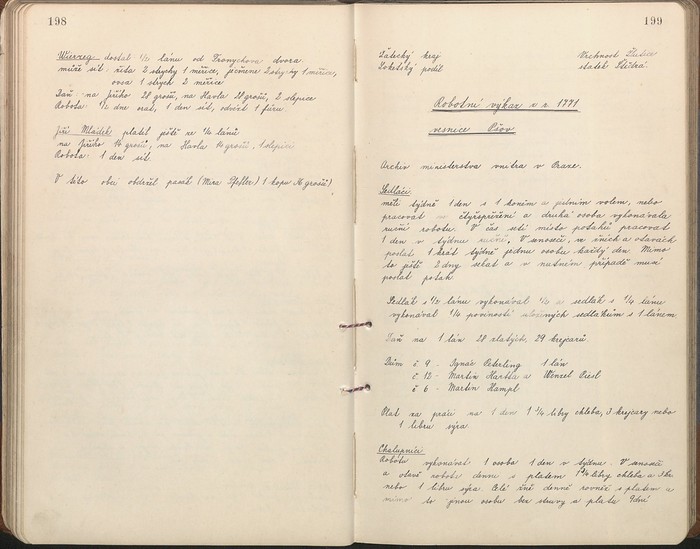 198
Wierzeg: dostal 1/2 lánu od Fronychova dvora.
může sít: žita 2 strychy 1 měřice, ječmene 2 strychy 1 měřice,
ovsa 1 strych 2 měřice
Daň na Jiřího 28 grošů, na Havla 28 grošů, 2 slepice
Robota 1/2 dne orat, 1 den sít, odvézt 1 fůru.
Jiří Mládek: platil ještě ze 1/4 lánů
na Jiřího 14 grošů, na Havla 14 grošů, 1 slepice
Robota: 1 den sít.
V této obci obdržel pasát (Mira Pfeffer) 1 kopu 16 grošů)
199
Žatecký kraj
Loketský podíl
Vrchnost Žlutice
statek Štědrá.
Robotní výkaz z r. 1771
vesnice Pšov
Archiv ministerstva vnitra v Praze.
Sedláci
měli týdně 1 den s 1 koněm a jedním volem, nebo
pracovat čtyřspřežení a druhá osoba vykonávala
ruční robotu. V čas setí místo potahů pracovat
1 den v týdnu ručně. V senoseči, ve žních a otavách
poslat 1 krát týdně jednu osobu každý den Mimo
to ještě 2 dny sekat a v nutném případě musí
poslat potah.
Sedlák s 1/2 lánu vykonával 1/2 a sedlák s 1/4 lánu
vykonával 1/4 povinností uložených sedlákům s 1 lánem
Daň na 1 lán 28 zlatých, 29 krejcarů.
Dům č 9 - Ignác Peterling 1 lán
č 12 - Martin Hartla a Wenzel Diesl
č 6 - Martin Hampl
Plat za práci na 1 den 1 1/4 libry chleba, 3 krejcary nebo
1 libru sýra
Chalupníci
Robotu vykonávat 1 osoba 1 den v týdnu. V senoseči
a otavě robotu denně s platem 1 1/4 libry chleba a 3 kr.
nebo 1 libru sýra. Celé žně denně rovněž s platem a
mimo to jinou osobu bez stravy a platu